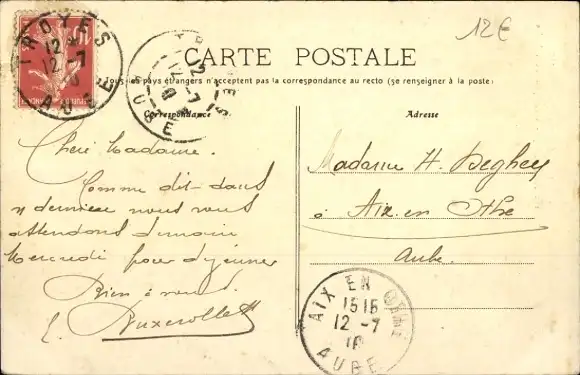 12€
TROYES
12 *
12 -7
AUBE
CARTE POSTALE
Tous les pays étrangers n'acceptent pas la correspondance au recto (se renseigner à la poste)
Correspondance
Adresse
Chère Madame.
Comme dit dans
dernière nous vous
attendons demain
Mercredi pour déjeuner
Bien à vous.
Madame H.
à Aix en Othe
Aube.
AIX EN OTHE
1515
12 -7
AUBE